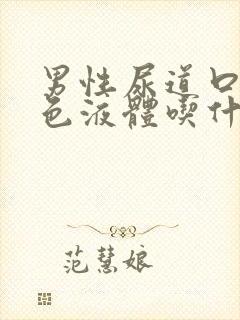 男性尿道口
色液體喫什
范慧娘